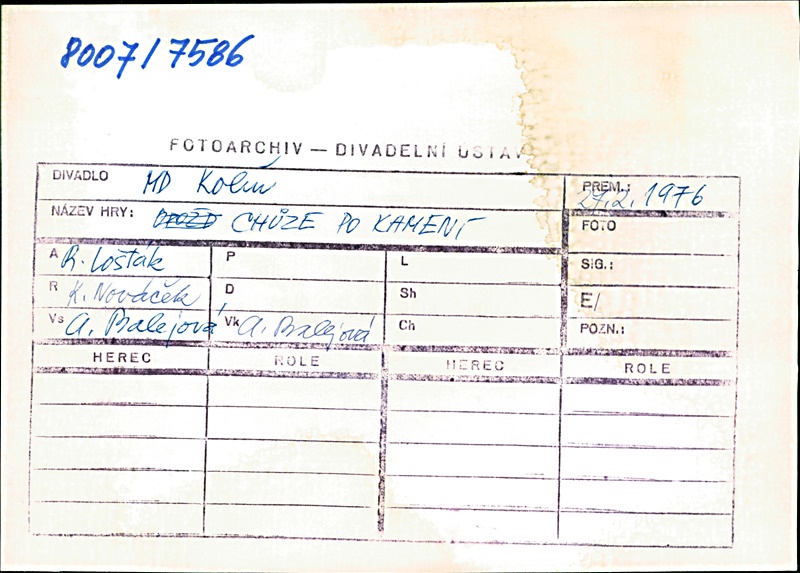 8007/7586
FOTOARCHIV — DIVADELNÍ ÚSTAV
DIVADLO MD Kolín PREM.: 29.2.1976
NÁZEV HRY: CHŮZE PO KAMENÍ FOTO
A R. Lošták P L SIG.:
R K. Nováček D Sh E/
Vs A. Balejová Vk A. Balejová Ch POZN.:
HEREC ROLE HEREC ROLE